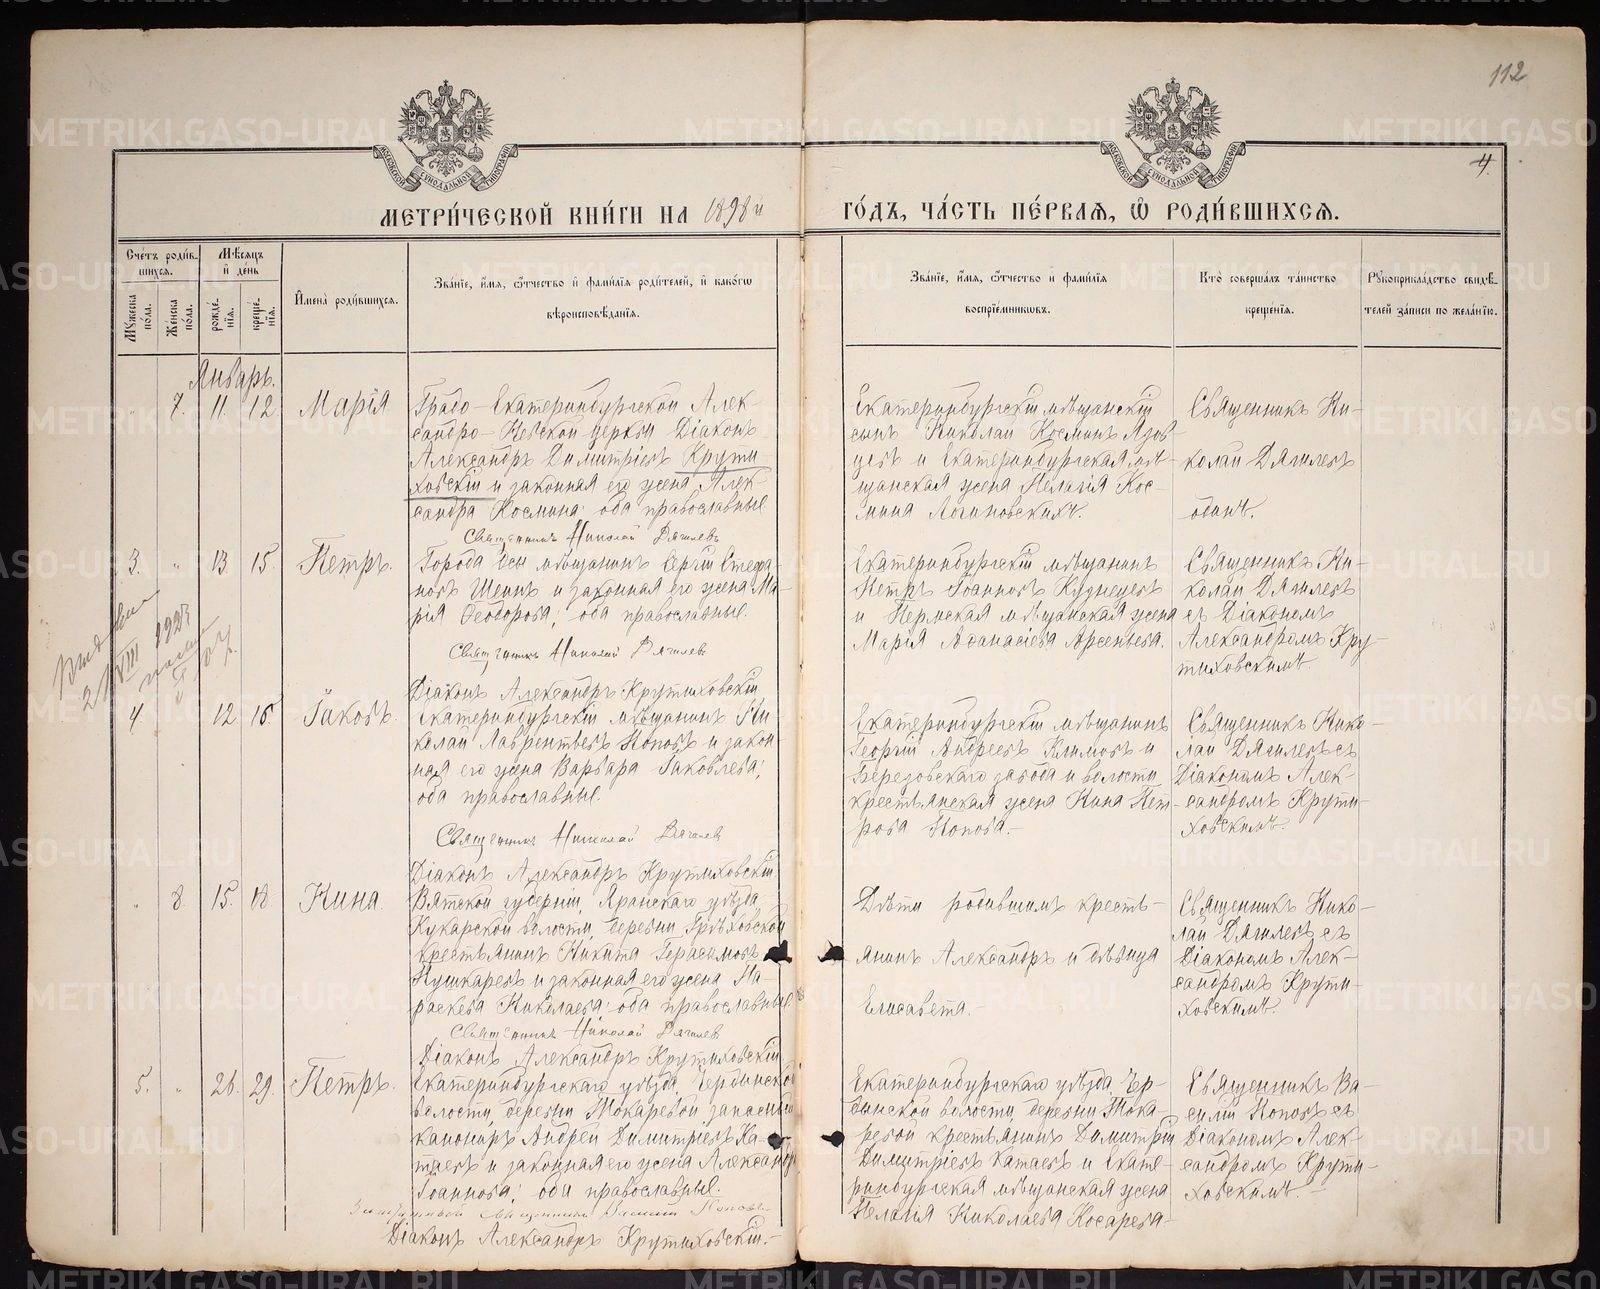 112
4.
МЕТРИ́ЧЕСКОЙ КНИ́ГИ НА 1898й
ГО́ДЪ, ЧА́СТЬ ПЕ́РВАЯ, Ѽ РОДИ́ВШИХСЯ.
Сче́тъ роди́в-
шихся.
Мꙋжеска по́ла.
Же́нска по́ла.
Мѣ́сяцъ
и҆ де́нь
рожде́-
нїя.
креще́-
нїя.
И҆мена̀ роди́вшихся.
Зва́нїе, и҆́мя, ѻ҆́тчество и҆ фами́лїя роди́телей, и҆ како́гѡ
вѣроисповѣ́данїя.
Зва́нїе, и҆́мя, ѻ҆́тчество и҆ фами́лїя
воспрїе́мникѡвъ.
Кто̀ соверша́лъ та́инство
креще́нїя.
Рꙋкоприкла́дство свидѣ́-
телей за́писи по жела́нїю.
Январь.
7. 11. 12. Марія
Градо-Екатеринбургской Алек-
сандро-Невской церкви Діаконъ
Александръ Димитріевъ Крути-
ховскій и законная его жена Алек-
сандра Космина; оба православные
Священникъ Николай Дягилевъ
Екатеринбургскій мѣщанскій
сынъ Николай Косминъ
и Екатеринбургская мѣ-
щанская жена Пелагія Кос-
мина Логиновскихъ.
Священникъ Ни-
колай Дягилевъ
одинъ.
3. " 13. 15. Петръ.
Города Осы мѣщанинъ Сергій Стефа-
новъ Шеинъ и законная его жена Ма-
рія Ѳеодорова; оба православные.
Священникъ Николай Дягилевъ
Діаконъ Александръ Крутиховскій
Екатеринбургскій мѣщанинъ
Петръ Іоанновъ Кузнецовъ
и Пермская мѣщанская жена
Марія Аѳанасіева Арсеньева.
Священникъ Ни-
колай Дягилевъ
съ Діакономъ
Александромъ Кру-
тиховскимъ.
21/VIII
4. 12 16. Іаковъ.
Екатеринбургскій мѣщанинъ Ни-
колай Лаврентьевъ Поповъ и закон-
ная его жена Варвара Іаковлева;
оба православные.
Священникъ Николай Дягилевъ
Діаконъ Александръ Крутиховскій
Екатеринбургскій мѣщанинъ
Георгій Андреевъ Климовъ и
Березовскаго завода и волости
крестьянская жена Нина Пет-
рова Попова.—
Священникъ Нико-
лай Дягилевъ съ
Діакономъ Алек-
сандромъ Крути-
ховскимъ.
" 8. 15. 18 Нина.
Вятской губерніи, Яранскаго уѣзда,
Кукарской волости, деревни Грѣховской
крестьянинъ Никита Герасимовъ
Пушкаревъ и законная его жена Па-
раскева Николаева; оба православные
Священникъ Николай Дягилевъ
Діаконъ Александръ Крутиховскій
Дѣти родившимъ кресть-
янинъ Александръ и дѣвица
Елисавета.—
Священникъ Нико-
лай Дягилевъ съ
Діакономъ Алек-
сандромъ Крути-
ховскимъ.
5. " 26. 29. Петръ.
Екатеринбургскаго уѣзда,
волости, деревни Токаревой запасный
канониръ Андрей Димитріевъ Ка-
таевъ и законная его жена Александра
Іоаннова; оба православные.
священникъ Василій Поповъ
Діаконъ Александръ Крутиховскій.—
Екатеринбургскаго уѣзда,
волости, деревни Тока-
ревой крестьянинъ Димитрій
Димитріевъ Катаевъ и Екате-
ринбургская мѣщанская жена
Пелагія Николаева Косарева—
Священникъ Ва-
силій Поповъ съ
Діакономъ Алек-
сандромъ Крути-
ховскимъ.—